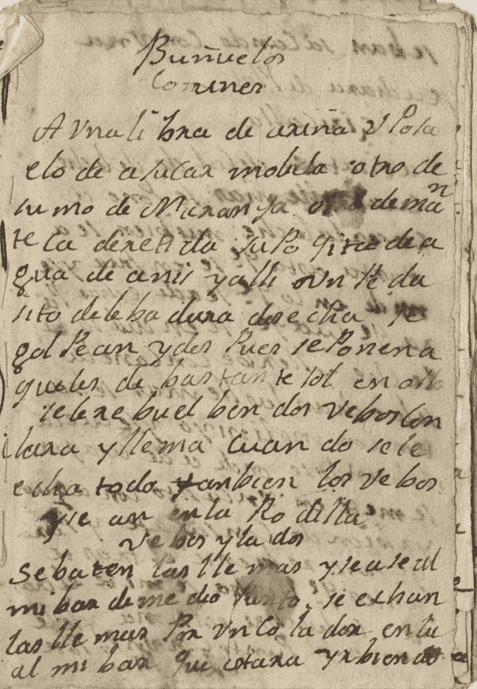 Buñuelos
Comunes
A Vna li bra de arina V Posu
elo de asucar molida otro de
sumo de Naranja de man
te ca deretida su Poqito de a
gua de anis y alli vn Pe da
sito de leba dura desecha se
gol Pean y des Pues se Ponen a
que les de bas tan te sol en
se le re buel ben dos Vebos con
clara y llema cuan do se le
echa todo tanbien los Vebos
y se an en la Ro dilla
Ve bos y la dos
se baten las lle mas y se ase al
mi bar de me dio Punto se echan
las lle mas Por Vn Co la dor en la
al mi bar que estara yrbiendo